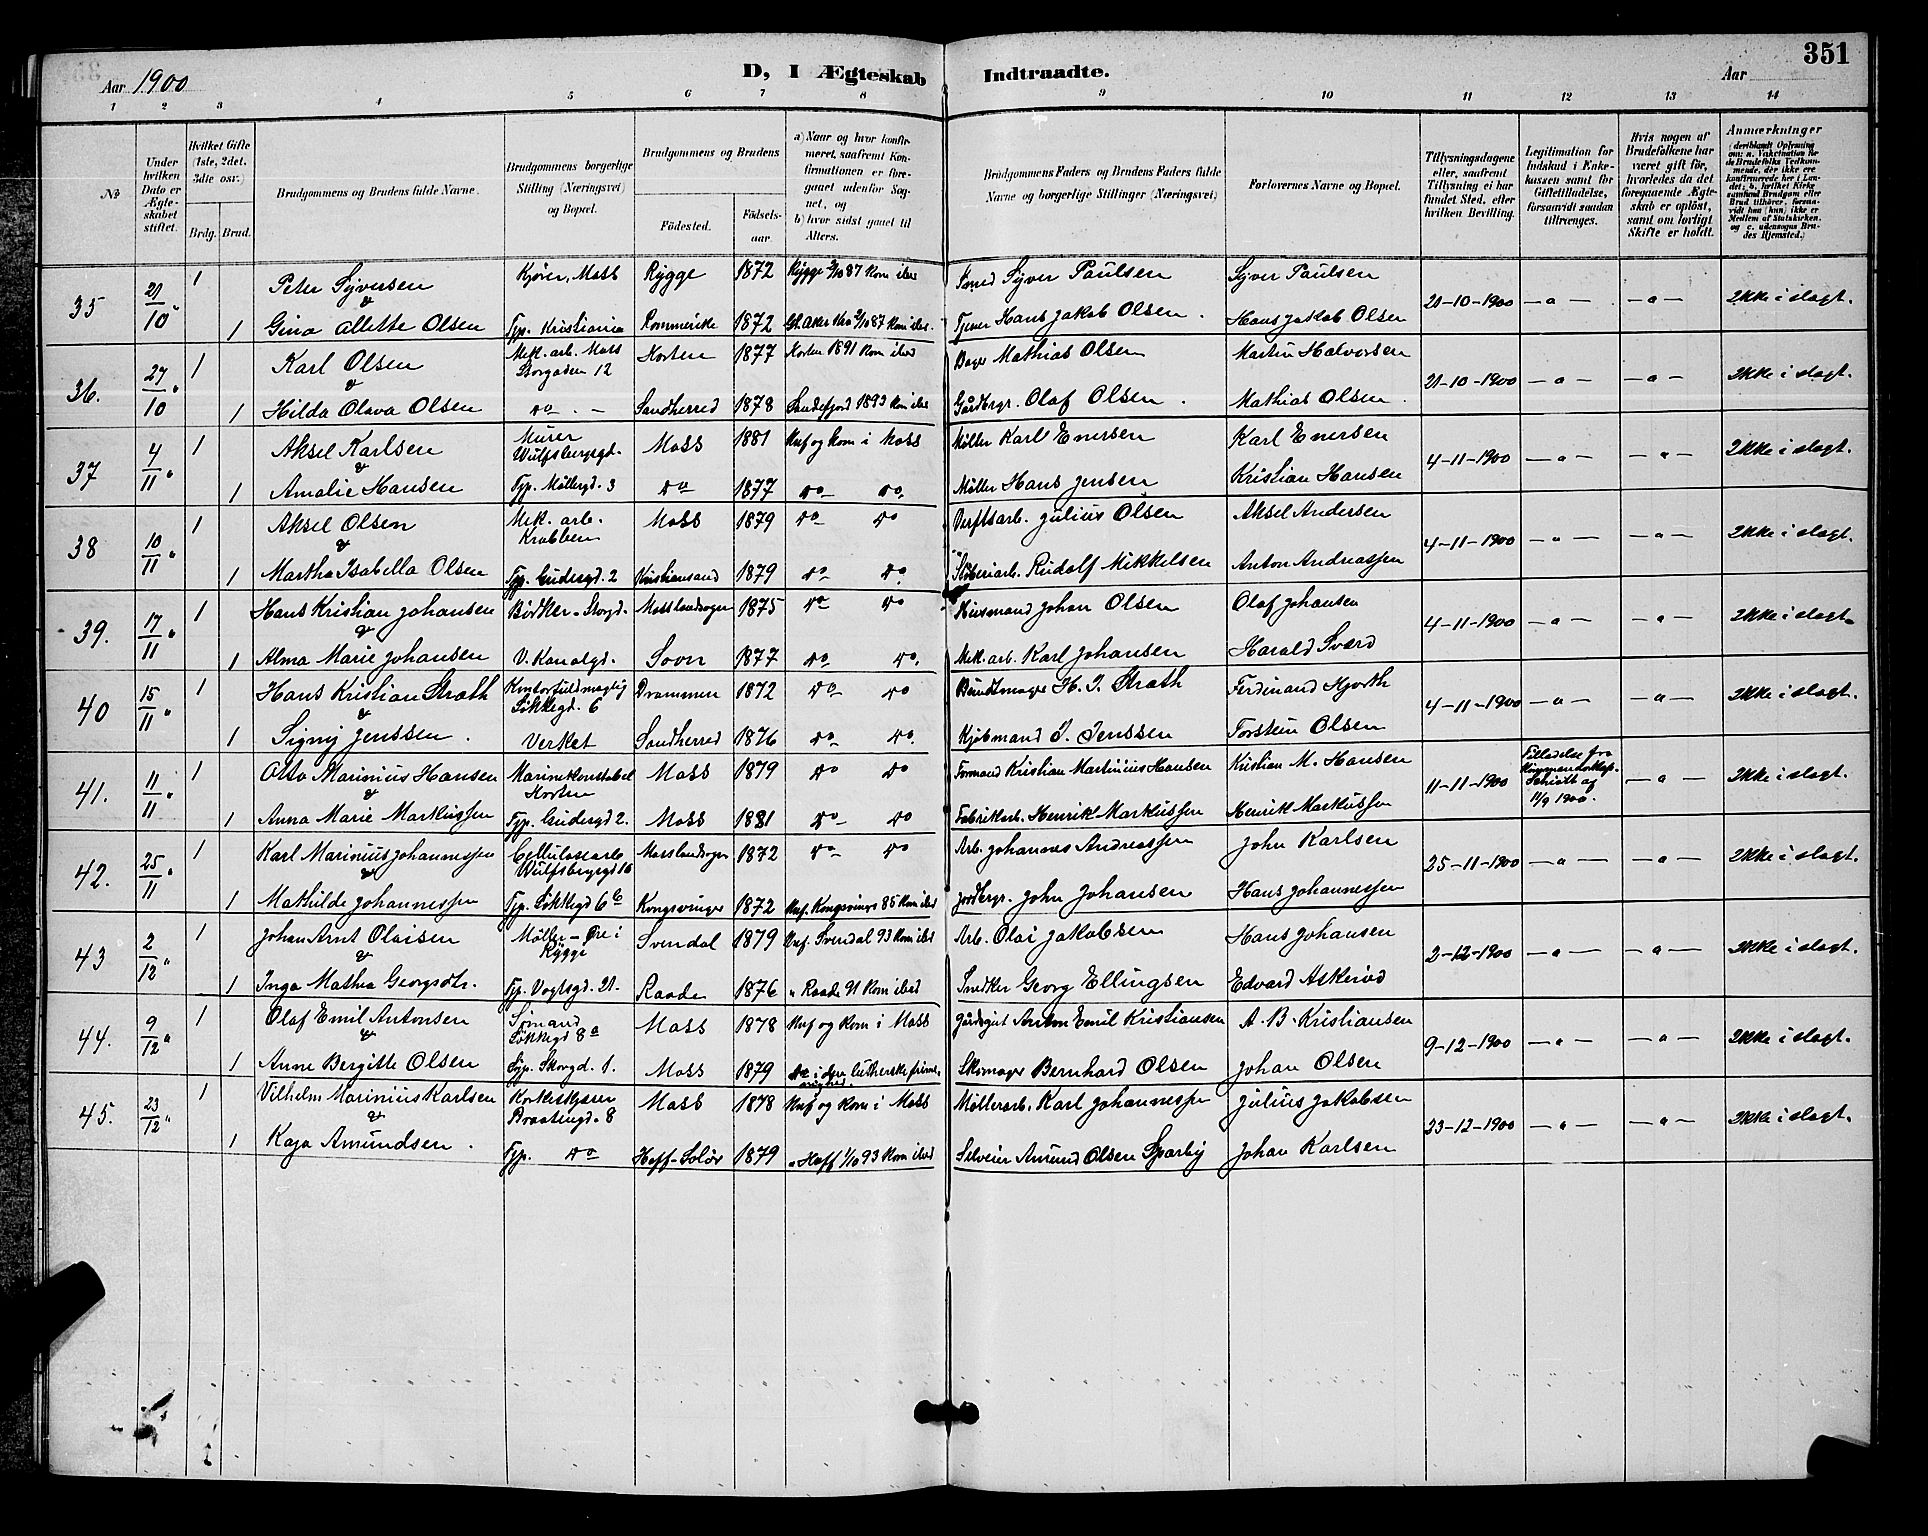 351
Aar 1900 D, I Ægteskab Indtraadte. Aar
1 2 3 4 5 6 7 8 9 10 11 12 13 14
No
Under hvilken Dato er Ægteskabet stiftet.
Hvilket Gifte (1ste, 2det, 3die osv.)
Brdg. Brud.
Brudgommens og Brudens fulde Navne.
Brudgommens borgerlige Stilling (Næringsvei) og Bopæl.
Brudgommens og Brudens
Fødested. Fødselsaar.
a) Naar og hvor konfirmeret, saafremt Konfirmationen er foregaaet udenfor Sognet, og
b) hvor sidst gaaet til Alters.
Brudgommens Faders og Brudens Faders fulde Navne og borgerlige Stillinger (Næringsvei)
Forlovernes Navne og Bopæl.
Tillysningsdagene eller, saafremt Tillysning ei har fundet Sted, efter hvilken Bevilling.
Legitimation for Indskud i Enkekassen samt for Giftetilladelse, forsaavidt saadan tiltrænges.
Hvis nogen af Brudefolkene har været gift før, hvorledes da det foregaaende Ægteskab er opløst, samt om lovligt Skifte er holdt.
Anmærkninger
35 21/10 1 Peter Syversen Kjører, Moss Rygge 1872 Rygge 2/10 87 Kom ibid Smed Syver Paulsen Syver Paulsen 21-10-1900 — " — — " — Ikke i slægt.
&
1 Gina Allette Olsen Fyp. Kristiania Rommerike 1872 Kom ibid. Tjener Hans Jakob Olsen. Hans Jakob Olsen
36. 27/10 1 Karl Olsen Mek. arb. Moss Storgaden 12 Horten 1877 Horten 1891 Kom ibid Bager Mathias Olsen Martin Halvorsen 21-10-1900 — " — — " — Ikke i slægt.
&
1 Hilda Olava Olsen do. — Sandherred 1878 Sandefjord 1893 Kom ibid Gårdbrgr. Olaf Olsen. Mathias Olsen.
37 4/11 1 Aksel Karlsen Murer Wulfsbergsgd. Moss 1881 Knf og Kom i Moss Møller Karl Enersen Karl Enersen 4-11-1900 — " — — " — Ikke i slægt.
&
1 Amalie Hansen Fyp. Møllergd. 3 do 1877 do do. Møller Hans Jensen Kristian Hansen
38 10/11 1 Aksel Olsen Mek. arb. Krabben Moss 1879 do do Verftsarb. Julius Olsen Aksel Andersen 4-11-1900 — " — — " — Ikke i slægt.
&
1 Martha Isabella Olsen Fyp. Gudesgd. 2 Kristiansand 1879 do do. Støberiarb. Rudolf Mikkelsen Anton Andreassen
39. 17/11 1 Hans Kristian Johansen Bødker - Storgd. Moss landsogn 1875 do do Husmand Johan Olsen Olaf Johansen 4-11-1900 — " — — " — Ikke i slægt.
&
1 Alma Marie Johansen V. Kanalgd. Soon 1877 do do. Mek. arb. Karl Johansen Harald Sværd
40 15/11 1 Hans Kristian Strath Kontorfuldmægtig Løkkegd. 6 Drammen 1872 do do Bundtmager H. J. Strath Ferdinand Hjorth 4-11-1900 — " — — " — Ikke i slægt.
&
1 Signy Jenssen. Verket Sandherred 1876 do do. Kjøbmand J. Jenssen Torstein Olsen
41. 11/11 1 Otto Marinius Hansen Marinekonstabel Horten Moss 1879 do do Formand Kristian Martinius Hansen Kristian M. Hansen 11-11-1900 Tilladelse fra Kommandørkap. Schiøtt af 11/9 1900. — " — Ikke i slægt.
&
1 Anna Marie Markussen Fyp. Gudesgd 2. Moss 1881 do do Fabrikarb. Henrik Markussen Henrik Markussen
42. 25/11 1 Karl Marinius Johannessen Cellulosearb. Wulfsbergsgd 16 Moss landsogn 1872 do do Arb. Johannes Andreassen John Karlsen 25-11-1900 — " — — " — Ikke i slægt.
&
1 Mathilde Johannessen Fyp. Løkkegd 6b Kongsvinger 1872 Knf. Kongsvinger 85 Kom ibid Jordbrgr. John Johansen Hans Johannessen
43 2/12 1 Johan Arnt Olaisen Møller - Øre i Rygge Svendal 1879 Knf. Svendal 93 Kom ibid Arb. Olai Jakobsen Hans Johansen 2-12-1900 — " — — " — Ikke i slægt.
&
1 Inga Mathea Georgsdtr. Fyp. Vogtsgd. 21. Raade 1876 " Raade 91 Kom ibid Snedker Georg Ellingsen Edvard Askerød
44. 9/12 1 Olaf Emil Antonsen Sømand Løkkegd 8a Moss 1878 Knf og Kom i Moss Gårdsgut Anton Emil Kristiansen A. B. Kristiansen 9-12-1900 — " — — " — Ikke i slægt.
&
1 Anne Bergitte Olsen Syp. Skorgd. 1. Moss 1879 do i den lutherske frimenighed. Skomager Bernhard Olsen Johan Olsen
45. 23/12 1 Vilhelm Marinius Karlsen Korkskjærer Braatengd. 8 Moss 1878 Knf og Kom i Moss Møllerarb. Karl Johannessen Julius Jakobsen 23-12-1900 — " — — " — Ikke i slægt.
&
1 Kaja Amundsen. Fyp. do Hoff-Solør 1879 " Hoff 1/10 93 Kom ibid Selveier Amund Olsen Sparby Johan Karlsen